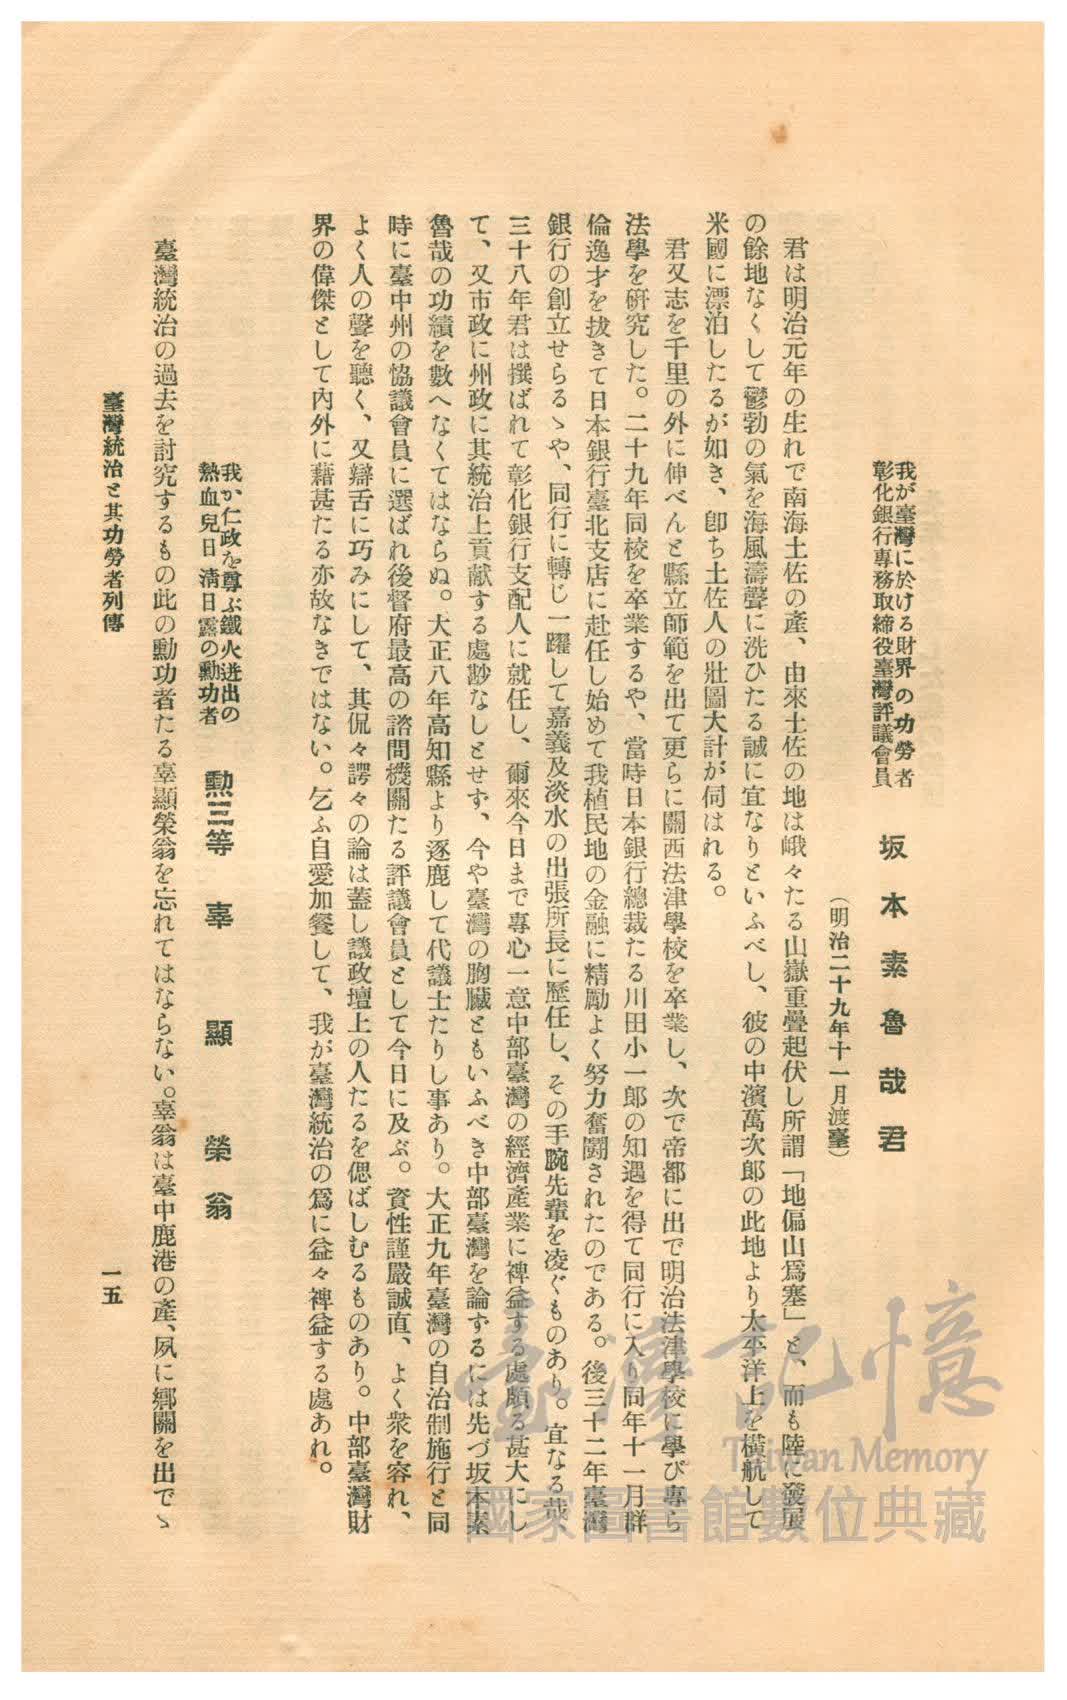 我が臺灣に於ける財界の功勞者
彰化銀行專務取締役臺灣評議會員
坂本素魯哉君
(明治二十九年十一月渡臺)
君は明治元年の生れで南海土佐の產、由來土佐の地は峨々たる山嶽重疊起伏し所謂「地偏山爲塞」と、而も陸に發展
の餘地なくして鬱勃の氣を海風濤聲に洗ひたる誠に宜なりといふべし、彼の中濱萬次郎の此地より太平洋上を橫航して
米國に漂泊したるが如き、卽ち土佐人の壯圖大計が伺はれる。
君又志を千里の外に伸べんと縣立師範を出て更らに關西法律學校を卒業し、次で帝都に出で明治法律學校に學び專ら
法學を硏究した。二十九年同校を卒業するや、當時日本銀行總裁たる川田小一郎の知遇を得て同行に入り同年十一月群
倫逸才を拔きて日本銀行臺北支店に赴任し始めて我植民地の金融に精勵よく努力奮鬪されたのである。後三十二年臺灣
銀行の創立せらるゝや、同行に轉じ一躍して嘉義及淡水の出張所長に歷任し、その手腕先輩を凌ぐものあり。宜なる哉
三十八年君は撰ばれて彰化銀行支配人に就任し、爾來今日まで專心一意中部臺灣の經濟產業に裨益する處頗る甚大にし
て、又市政に州政に其統治上貢献する處尠なしとせず、今や臺灣の胸臟ともいふべき中部臺灣を論ずるには先づ坂本素
魯哉の功績を數へなくてはならぬ。大正八年高知縣より逐鹿して代議士たりし事あり。大正九年臺灣の自治制施行と同
時に臺中州の恊議會員に選ばれ後督府最高の諮問機關たる評議會員として今日に及ぶ。資性謹嚴誠直、よく衆を容れ、
よく人の聲を聽く、又辯舌に巧みにして、其侃々諤々の論は蓋し議政壇上の人たるを偲ばしむるものあり。中部臺灣財
界の偉傑として內外に藉甚たる亦故なきではない。乞ふ自愛加餐して、我が臺灣統治の爲に益々裨益する處あれ。
我が仁政を尊ぶ鐵火迸出の
熱血兒日淸日露の勳功者
勳三等 辜顯榮翁
臺灣統治の過去を討究するもの此の勳功者たる辜顯榮翁を忘れてはならない。辜翁は臺中鹿港の產、夙に鄕關を出でゝ
臺灣統治と其功勞者列傳
一五
臺灣記憶
Taiwan Memory
國家圖書館數位典藏